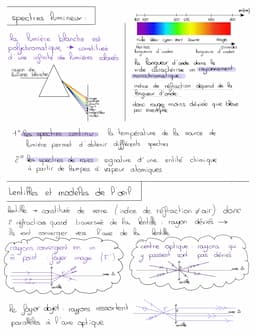 spectres lumineux :
la lumière blanche est
polychromatique → constituée
d'une infinité de lumières colorés
rayon de
lumière blanche
400
500
600
700
800
violet bleu cyan vert jaune rouge
longueurs d'ondes
longueurs d'ondes
la longueur d'onde dans le
vide caractérise un rayonnement
monochromatique.
indice de réfraction dépend de la
longueur d'onde
donc rouge moins dévié que bleu
par exemple
1° les spectres continus : la température de la source de
lumière permet d'obtenir différents spectres
2° les spectres de raies : signature d'une entité chimique
à partir de lampes à vapeur atomiques
Lentilles et modèles de l'œil
lentille → constitué de verre (indice de réfraction ≠ air) donc
2 réfractions quand traversée de la lentille, rayon déviés →
ils vont converger vers l'axe de la lentille
rayons convergent en un
point foyer image (F')
centre optique rayons qui
y passent sont pas déviés
le foyer objet : rayons ressortent
parallèles à l'axe optique